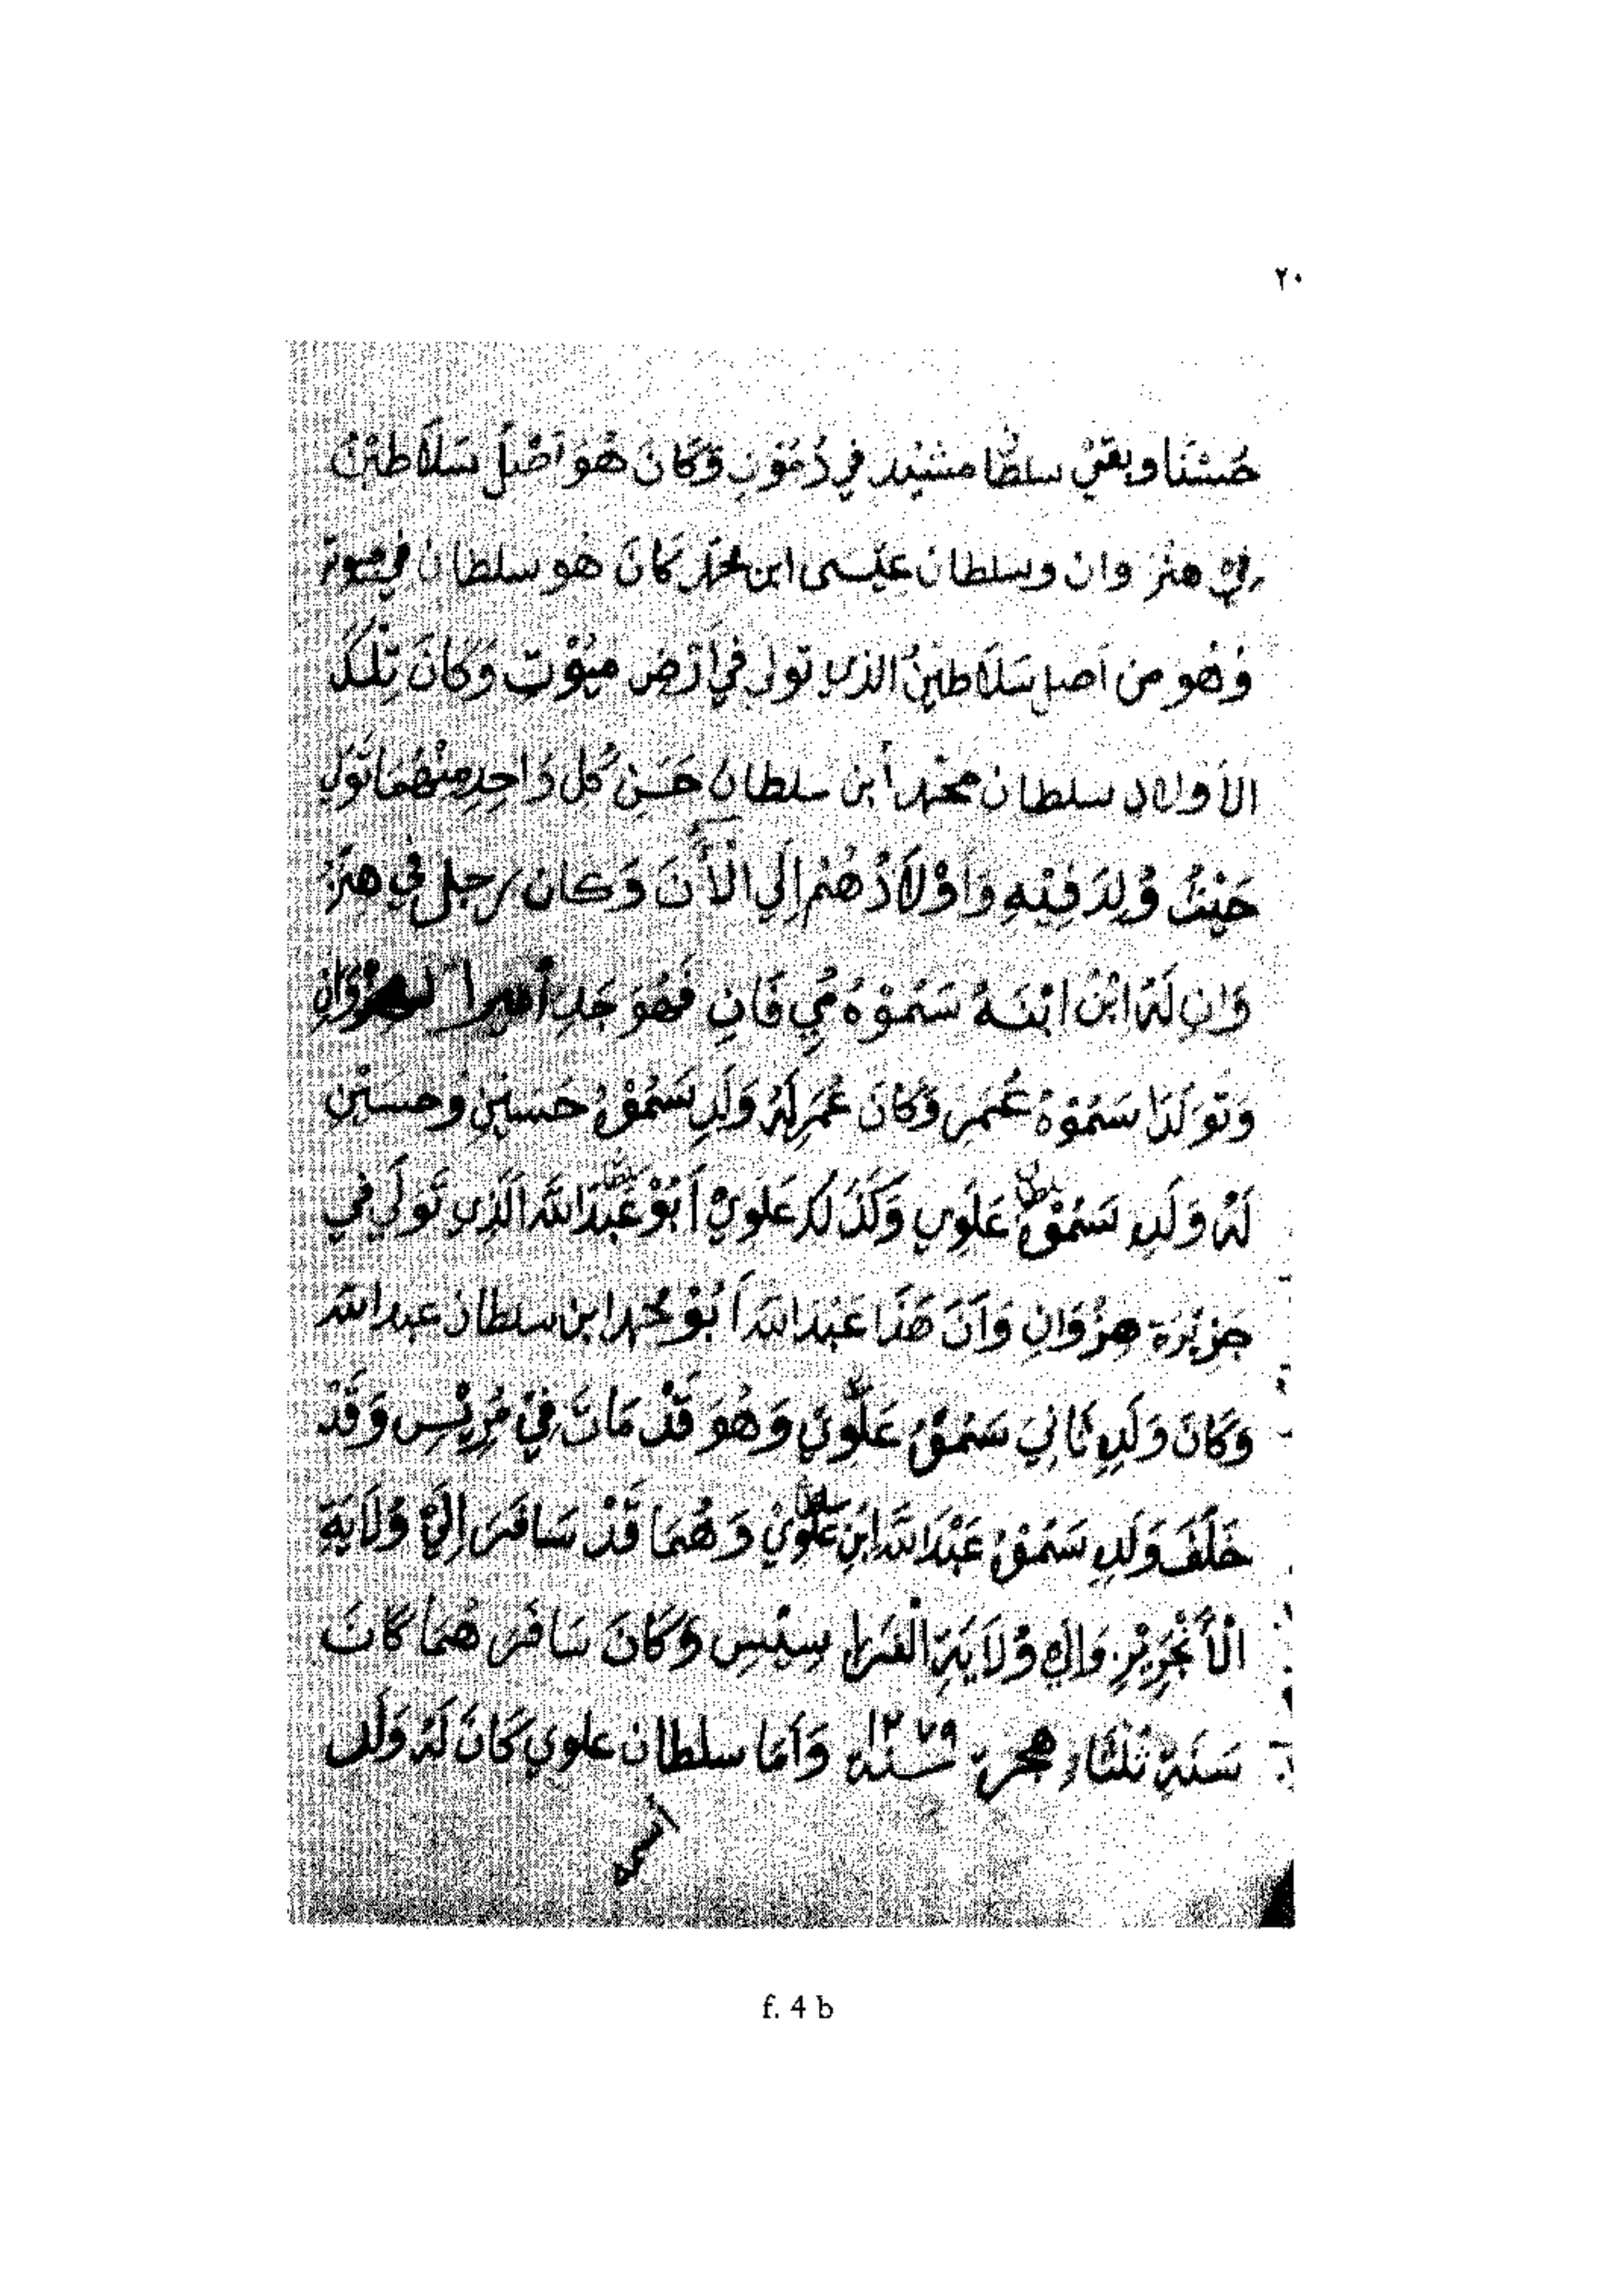 ٢٠
وبقي سلطا في وَكَانَ هُوَ أَصْلُ سَلَاطِيْنُ
وان وسلطان عيسى ابن محمد كَانَ هُو سلطان في
وَهُو من أصل سَلَاطِيْنُ الذي تولي في أَرْض مَيُوْتِ وَكَانَ تِلْكَ
الأولاد سلطان محمد أبن سلطان حَسَنْ كُل وَاحِدِ مِنْهُمَا تَوَلي
حَيْثُ وُلِدَ فِيْهِ وَأَوْلَادُهُمْ إِلَي الْأَنَ وَكَان رجل في هِنْزُ
وَانِ لَهُ ابْنُ ابْنَهُ سَمُوْهُ مِي فَانِ فَهُوَ جَدِ أميرا
وَتَوَلَدَا سَمُوْهُ عُمَر وَكَانَ عُمَر لَهُ وَلَدِ سَمُوْهُ حَسَيْنِ وَحسَيْنِ
لَهُ وَلَدِ سَمُوْهُ سلطان عَلَوِي وَكَذَلِكَ عَلَوِيْ أَبُوْ سلطان عَبْدَ اللَّه الَّذِي تَوَلَي في
جَزِيْرَة هِنْزُوَانِ وَأَنَ هَذَا عَبْدَ اللَّه أَبُوْ محمد ابن سلطان عبد الله
وَكَانَ وَلَدِ ثَانِيَ سَمُوْهُ عَلَوِيَ وَهُوَ قَدْ مَاتَ فِيْ مُرِيْسِ وَقَدْ
خَلَفَ وَلَدِ سَمُوْهُ عَبْدَ اللَّه ابْنِ سلطان عَلَوِيْ وَهُمَا قَدْ سَافَرَ إِلَيْ وُلَايَةِ
الْأَنْجَرِيْزِ وَالِي وُلَايَةِ الْفَرَا سِيْسِ وَكَانَ سَافَرَ هُمَا كَانَ
سَنَةِ ثَلَثَاء هجرة سنه ١٢٧٩ وَأَمَا سلطان علوي كَانَ لَهُ وَلَد
أسمه
f. 4 b